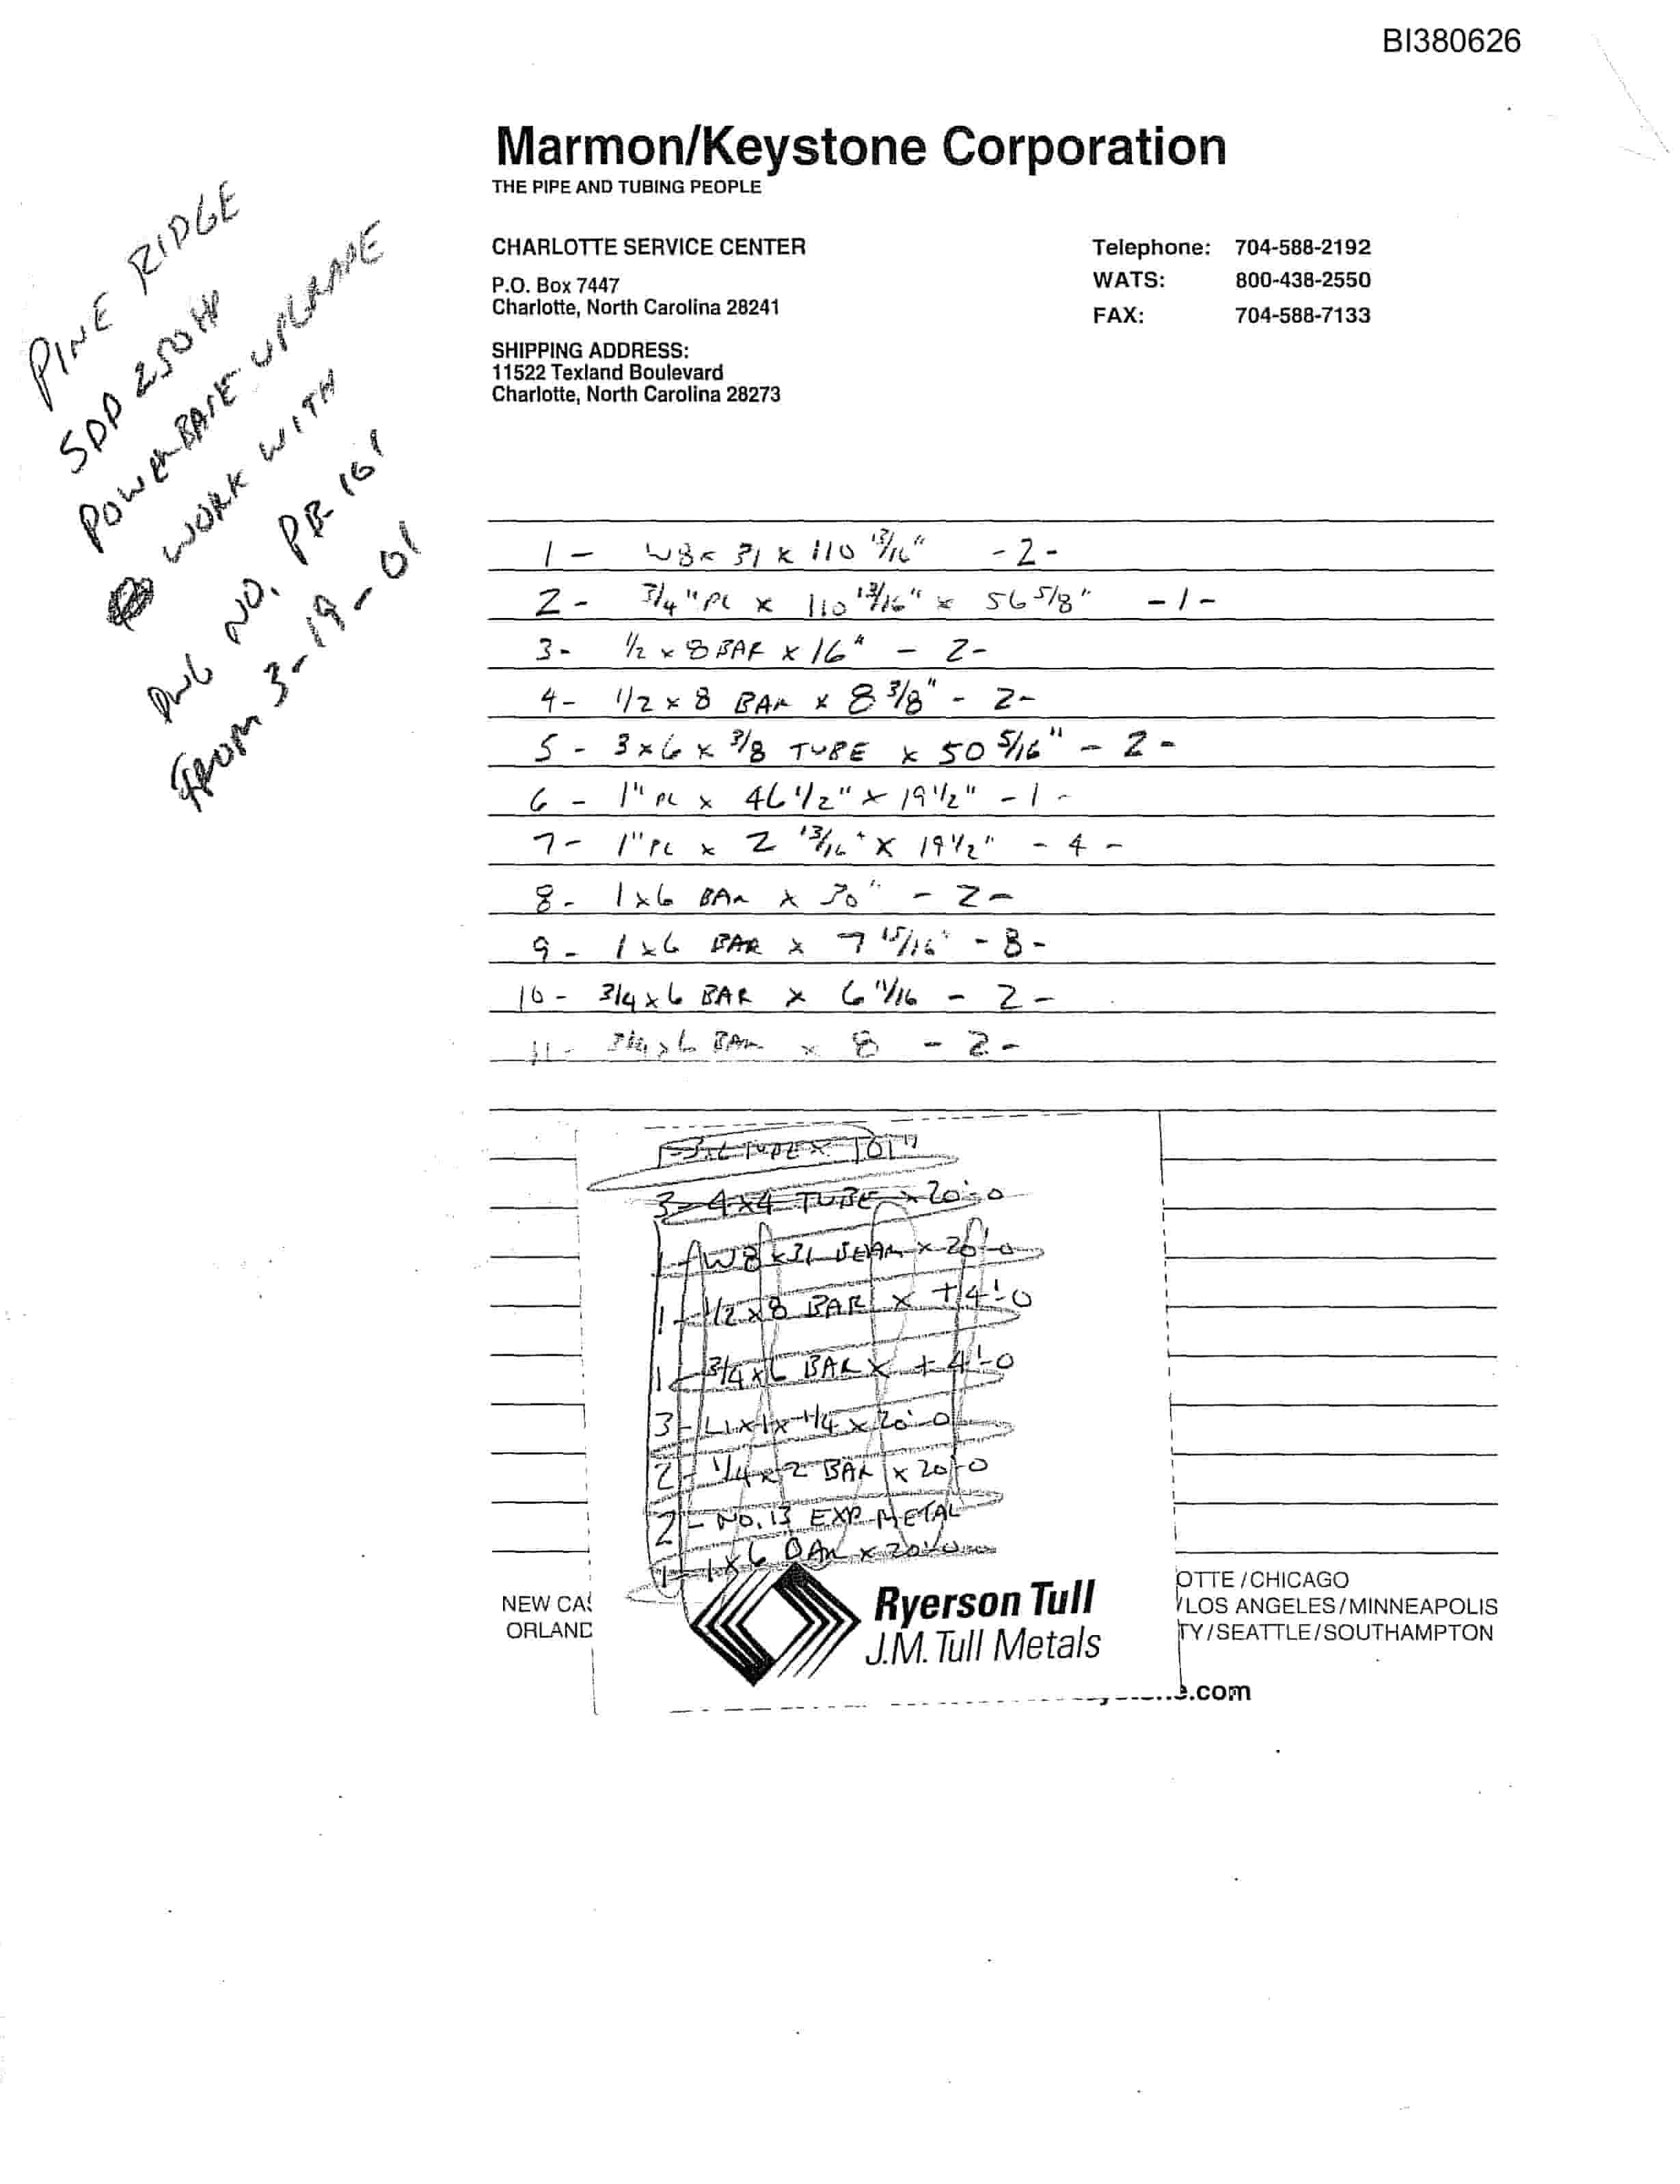 BI380626
Marmon/Keystone Corporation
THE PIPE AND TUBING PEOPLE
CHARLOTTE SERVICE CENTER
P.O. Box 7447
Charlotte, North Carolina 28241
SHIPPING ADDRESS:
11522 Texland Boulevard
Charlotte, North Carolina 28273
Telephone: 704-588-2192
WATS: 800-438-2550
FAX: 704-588-7133
PINE RIDGE
SDD 250 HP
POWERBASE UPGRADE
WORK WITH
DWG NO. PB-161
FROM 3-19-01
1 - W8 x 31 x 110 13/16" - 2 -
2 - 3/4" PL x 110 13/16" x 56 5/8" - 1 -
3 - 1/2 x 8 BAR x 16" - 2 -
4 - 1/2 x 8 BAR x 8 3/8" - 2 -
5 - 3 x 6 x 3/8 TUBE x 50 5/16" - 2 -
6 - 1" PL x 46 1/2" x 19 1/2" - 1 -
7 - 1" PL x 2 13/16" x 19 1/2" - 4 -
8 - 1 x 6 BAR x 30" - 2 -
9 - 1 x 6 BAR x 7 15/16" - 8 -
10 - 3/4 x 6 BAR x 6 11/16 - 2 -
11 - 3/4 x 6 BAR x 8 - 2 -
TUBE x 101"
3 - 4x4 TUBE x 20'-0
1 - W8 x 31 BEAM x 20'-0
1 - 1/2 x 8 BAR x + 4'-0
1 - 3/4 x 6 BAR x + 4'-0
3 - L1 x 1 x 1/4 x 20'-0
2 - 1/4 x 2 BAR x 20'-0
2 - NO. 13 EXP. METAL
1 - 1 x 6 BAR x 20'-0
Ryerson Tull
J.M. Tull Metals
NEW CAS
ORLAND
OTTE / CHICAGO
/ LOS ANGELES / MINNEAPOLIS
TY / SEATTLE / SOUTHAMPTON
e.com